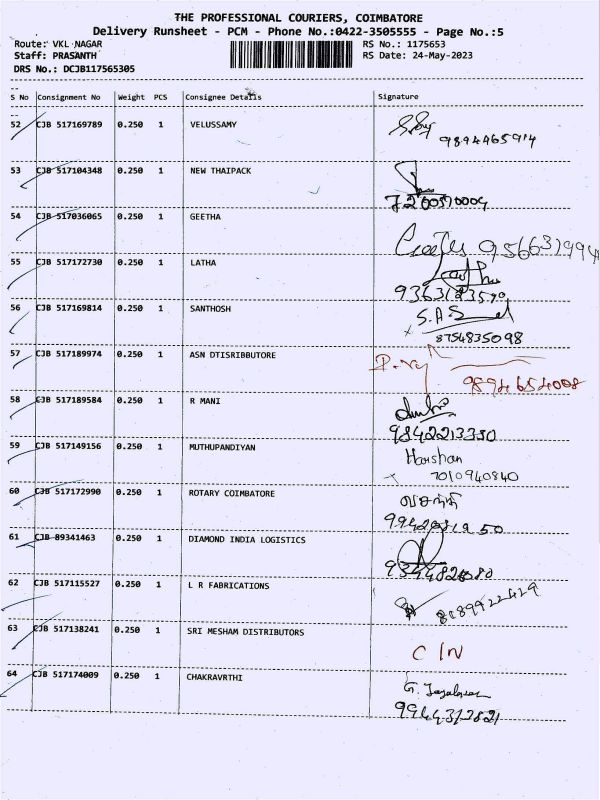 THE PROFESSIONAL COURIERS, COIMBATORE
Delivery Runsheet - PCM - Phone No.:0422-3505555 - Page No.:5
Route: VKL NAGAR RS No.: 1175653
Staff: PRASANTH RS Date: 24-May-2023
DRS No.: DCJB117565305
S No Consignment No Weight PCS Consignee Details Signature
52 CJB 517169789 0.250 1 VELUSSAMY
9894465914
53 CJB 517104348 0.250 1 NEW THAIPACK
7200570004
54 CJB 517036065 0.250 1 GEETHA
Geetha 9566371994
55 CJB 517172730 0.250 1 LATHA
56 CJB 517169814 0.250 1 SANTHOSH
8754835098
57 CJB 517189974 0.250 1 ASN DTISRIBBUTORE
9894654008
58 CJB 517189584 0.250 1 R MANI
9842213350
59 CJB 517149156 0.250 1 MUTHUPANDIYAN Harshan
7010940840
60 CJB 517172990 0.250 1 ROTARY COIMBATORE
61 CJB 89341463 0.250 1 DIAMOND INDIA LOGISTICS
62 CJB 517115527 0.250 1 L R FABRICATIONS
8189922429
63 CJB 517138241 0.250 1 SRI MESHAM DISTRIBUTORS
C IN
64 CJB 517174009 0.250 1 CHAKRAVRTHI